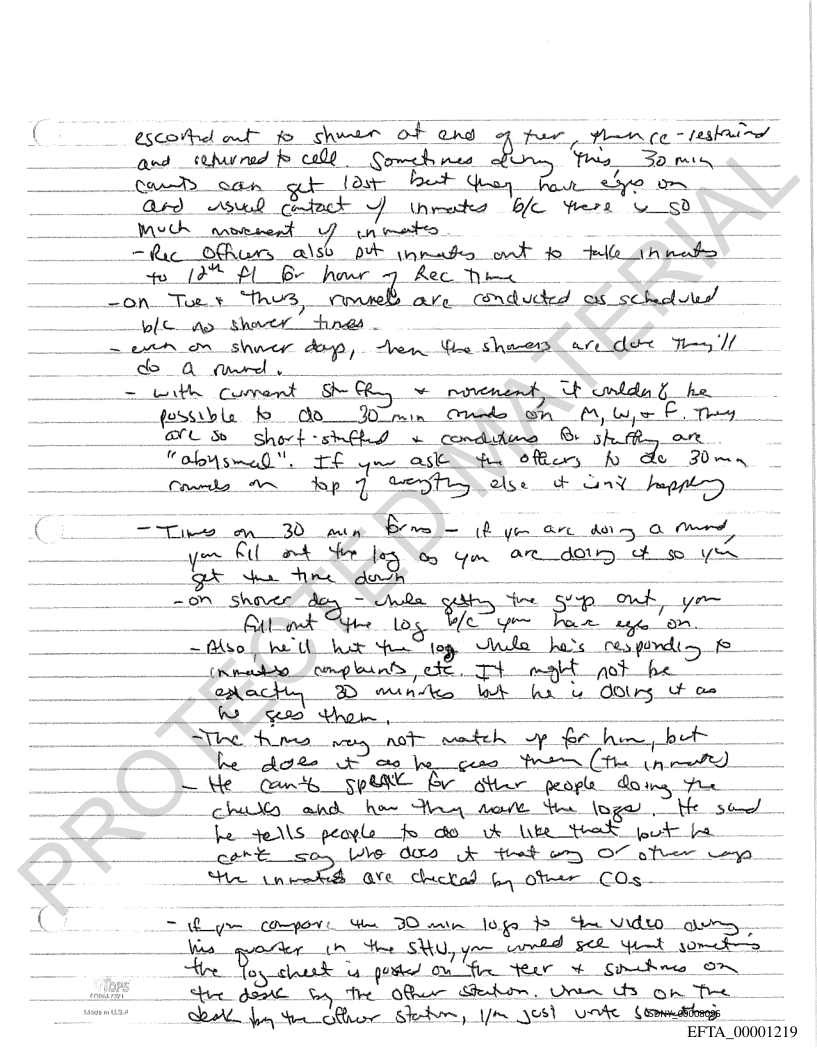 escorted out to shower at end of tier, then re-restrained
and returned to cell. Sometimes during this, 30 min
counts can get lost but they have eyes on
and visual contact w/ inmates b/c there is so
much movement w/ inmates.
- Rec Officers also put inmates out to take inmates
to 12th fl for hour of Rec Time
- on Tue + Thurs, rounds are conducted as scheduled
b/c no shower times.
- even on shower days, when the showers are done they'll
do a round.
- with current staffing + movement, it wouldn't be
possible to do 30 min rounds on M, W, + F. They
are so short-staffed + conditions for staffing are
"abysmal". If you ask the officers to do 30 min
rounds on top of everything else it isn't happening
- Times on 30 min forms - if you are doing a round,
you fill out the log as you are doing it so you
get the time down
- on shower day - while getting the guys out, you
fill out the log b/c you have eyes on.
- Also, he'll hit the log while he's responding to
inmates complaints, etc. It might not be
exactly 30 minutes but he is doing it as
he sees them.
- The times may not match up for him, but
he does it as he sees them (the inmate)
- He can't speak for other people doing the
checks and how they mark the logs. He said
he tells people to do it like that but he
can't say who does it that way or other ways
the inmates are checked by other COs
- if you compare the 30 min logs to the video during
his quarter in the SHU, you would see that sometimes
the log sheet is posted on the teer + sometimes on
the desk by the officer station. When its on the
desk by the officer station, I'm just write
TOPS
FORM 7521
Made in U.S.A
EFTA_00001219
PROTECTED MATERIAL